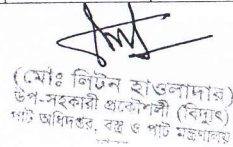 (মোঃ লিটন হাওলাদার)
উপ-সহকারী প্রকৌশলী (বিদ্যুৎ)
পাট অধিদপ্তর, বস্ত্র ও পাট মন্ত্রণালয়